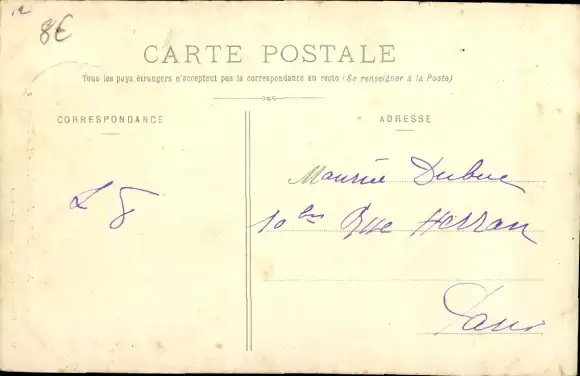 8€
CARTE POSTALE
Tous les pays étrangers n'acceptent pas la correspondance au recto (Se renseigner à la Poste)
CORRESPONDANCE
ADRESSE
Maurice Dubuc
L 8
10 bis Rue Herran
Paris